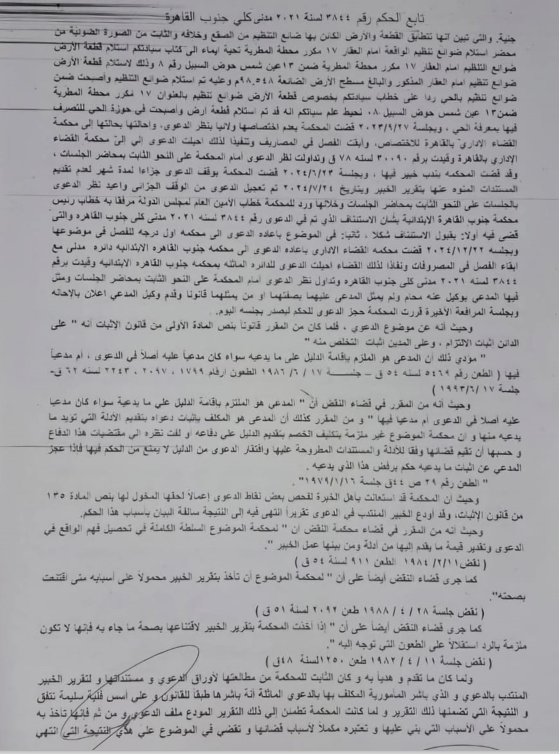 تابع الحكم رقم ٣٨٤٤ لسنة ٢٠٢١ مدنى كلي جنوب القاهرة
جنية. والتى تبين أنها تتطابق القطعة والأرض الكائن بها ضائع التنظيم من الصقع وخلافه والثابت من الصورة الضوئية من
محضر إستلام ضوائع تنظيم الواقعة امام العقار ١٧ مكرر محطة المطرية تحية ايماء الى كتاب سيادتكم استلام قطعة الأرض
ضوائع تنظيم امام العقار ١٧ مكرر محطة المطرية ضمن ١٣عين شمس حوض السبيل رقم ٨ وذلك لاستلام قطعة الأرض
ضوائع تنظيم امام العقار المذكور والبالغ مسطح الأرض الضائعة ٩٨,٥٤٨ وعليه تم استلام ضوائع التنظيم وأصبحت ضمن
ضوائع تنظيم بالحي ردا على خطاب سيادتكم بخصوص قطعة الأرض ضوائع تنظيم بالعنوان ١٧ مكرر محطة المطرية
ضمن١٣ عين شمس حوض السبيل ٠٨ نحيط علم سيادتكم انه قد تم استلام قطعة ارض وأصبحت في حوزة الحي للتصرف
فيها بمعرفة الحي ، وبجلسة ٢٠٢٣/٩/٢٧ قضت المحكمة بعدم اختصاصها ولانيا بنظر الدعوى، واحالتها بحالتها إلى محكمة
القضاء الاداري بالقاهرة للاختصاص، وأبقت الفصل في المصاريف وتنفيذا لذلك احيلت الدعوى إلي الىّ محكمة القضاء
الإداري بالقاهرة وقيدت برقم ٣٠٠٩٠ لسنه ٧٨ ق وتداولت نظر الدعوى أمام المحكمة على النحو الثابت بمحاضر الجلسات ،
وقد قضت المحكمة بندب خبير فيها ، وبجلسة ٢٠٢٤/٦/٢٣ قضت المحكمة بوقف الدعوى جزاءا لمدة شهر لعدم تقديم
المستندات المنوه عنها بتقرير الخبير وبتاريخ ٢٠٢٤/٧/٢٤ تم تعجيل الدعوى من الوقف الجزائى واعيد نظر الدعوى
بالجلسات على النحو الثابت بمحاضر الجلسات وخلالها ورد للمحكمة خطاب الأمين العام لمجلس الدولة مرفقا به خطاب رئيس
محكمة جنوب القاهرة الابتدائية بشأن الاستئناف الذي تم في الدعوى رقم ٣٨٤٤ لسنه ٢٠٢١ مدنى كلى جنوب القاهرة والتى
قضى فيه أولا: بقبول الاستئناف شكلا ، ثانيا: في الموضوع باعاده الدعوى الى محكمه اول درجه للفصل في موضوعها
وبجلسه ٢٠٢٤/١٢/٢٢ قضت محكمه القضاء الادارى باعاده الدعوى الى محكمه جنوب القاهره الابتدائيه دائره مدنى مع
ابقاء الفصل في المصروفات ونفاذا لذلك القضاء احيلت الدعوى للدائره الماثله بمحكمه جنوب القاهره الابتدائيه وقيدت برقم
٣٨٤٤ لسنه ٢٠٢١ مدنى كلى جنوب القاهره وتداول نظر الدعوى امام المحكمة على النحو الثابت بمحاضر الجلسات ومثل
فيها المدعي بوكيل عنه محام ولم يمثل المدعى عليهما بصفتهما او من يمثلهما قانونا وقدم وكيل المدعي اعلان بالإحاله
وبجلسة المرافعة الأخيرة قررت المحكمة حجز الدعوى للحكم ليصدر بجلسه اليوم.
وحيث أنه عن موضوع الدعوي ، فلما كان من المقرر قانوناً بنص المادة الأولى من قانون الإثبات أنه " على
الدائن إثبات الالتزام ، وعلى المدين إثبات التخلص منه "
" مؤدي ذلك أن المدعي هو الملزم بإقامة الدليل علي ما يدعيه سواء كان مدعياً عليه أصلاً في الدعوى ، أم مدعياً
فيها ( الطعن رقم ٥٤٦٩ لسنه ٥٤ ق – جلسـة ١٧ / ٦ /١٩٨٦ الطعون ارقام ١٧٩٩ ، ٢٠٩٧ ، ٢٢٤٣ لسنه ٦٢ ق-
جلسة ١٧ /١٩٩٣/٦ )
وحيث أنه من المقرر في قضاء النقض أنّ " المدعي هو الملزم بإقامة الدليل علي ما يدعية سواء كان مدعياً
عليه أصلا في الدعوى أم مدعيا فيها " و من المقرر كذلك أن المدعى هو المكلف بإثبات دعواه بتقديم الأدلة التي تؤيد ما
يدعيه منها و أن محكمة الموضوع غير ملزمة بتكليف الخصم بتقديم الدليل علي دفاعه أو لفت نظره الي مقتضيات هذا الدفاع
و حسبها أن تقيم قضائها وفقا للأدلة والمستندات المطروحة عليها وافتقار الدعوى من الدليل لا يمتنع من الحكم فيها فإذا عجز
المدعي عن اثبات ما يدعيه حكم برفض هذا الذي يدعيه.
" الطعن رقم ٢٩ ص ٤٤ق جلسة ١٩٧٩/١/١٦"
وحيث ان المحكمة قد استعانت بأهل الخبرة لفحص بعض نقاط الدعوى إعمالا لحقها المخول لها بنص المادة ١٣٥
من قانون الإثبات، وقد أودع الخبير المنتدب في الدعوى تقريراً انتهى فيه إلى النتيجة سالفة البيان بأسباب هذا الحكم.
وحيث أنه من المقرر في قضاء محكمة النقض ان " لمحكمة الموضوع السلطة الكاملة في تحصيل فهم الواقع في
الدعوى وتقدير قيمة ما يقدم إليها من أدلة ومن بينها عمل الخبير ".
( نقض ٢/١١/ ١٩٨٤ الطعن ٩١١ لسنة ٥٤ ق )
كما جرى قضاء النقض أيضاً على أن " لمحكمة الموضوع أن تأخذ بتقرير الخبير محمولاً على أسبابه متى اقتنعت
بصحته".
( نقض جلسة ٢٨ / ٤ / ١٩٨٨ طعن ٢٠٩٢ لسنة ٥١ ق )
كما جرى قضاء النقض أيضاً على أن " إذا أخذت المحكمة بتقرير الخبير لاقتناعها بصحة ما جاء به فإنها لا تكون
ملزمة بالرد استقلالاً على الطعون التي توجه إليه ".
( نقض جلسة ١١ / ٤ / ١٩٨٢ طعن ١٢٥٠ لسنة ٤٨ق )
ولما كان ما تقدم و هديا به و كان الثابت للمحكمة من مطالعتها لأوراق الدعوي و مستنداتها و لتقرير الخبير
المنتدب بالدعوي و الذي باشر المأمورية المكلف بها بالدعوي الماثلة أنه باشرها طبقا للقانون و علي أسس فنية سليمة تتفق
و النتيجة التي تضمنها ذلك التقرير و لما كانت المحكمة تطمئن إلي ذلك التقرير المودع ملف الدعوي و من ثم فإنها تأخذ به
محمولاً علي الأسباب التي بني عليها و تعتبره مكملاً لأسباب قضائها و تقضي في الموضوع علي هدي النتيجة التي انتهي